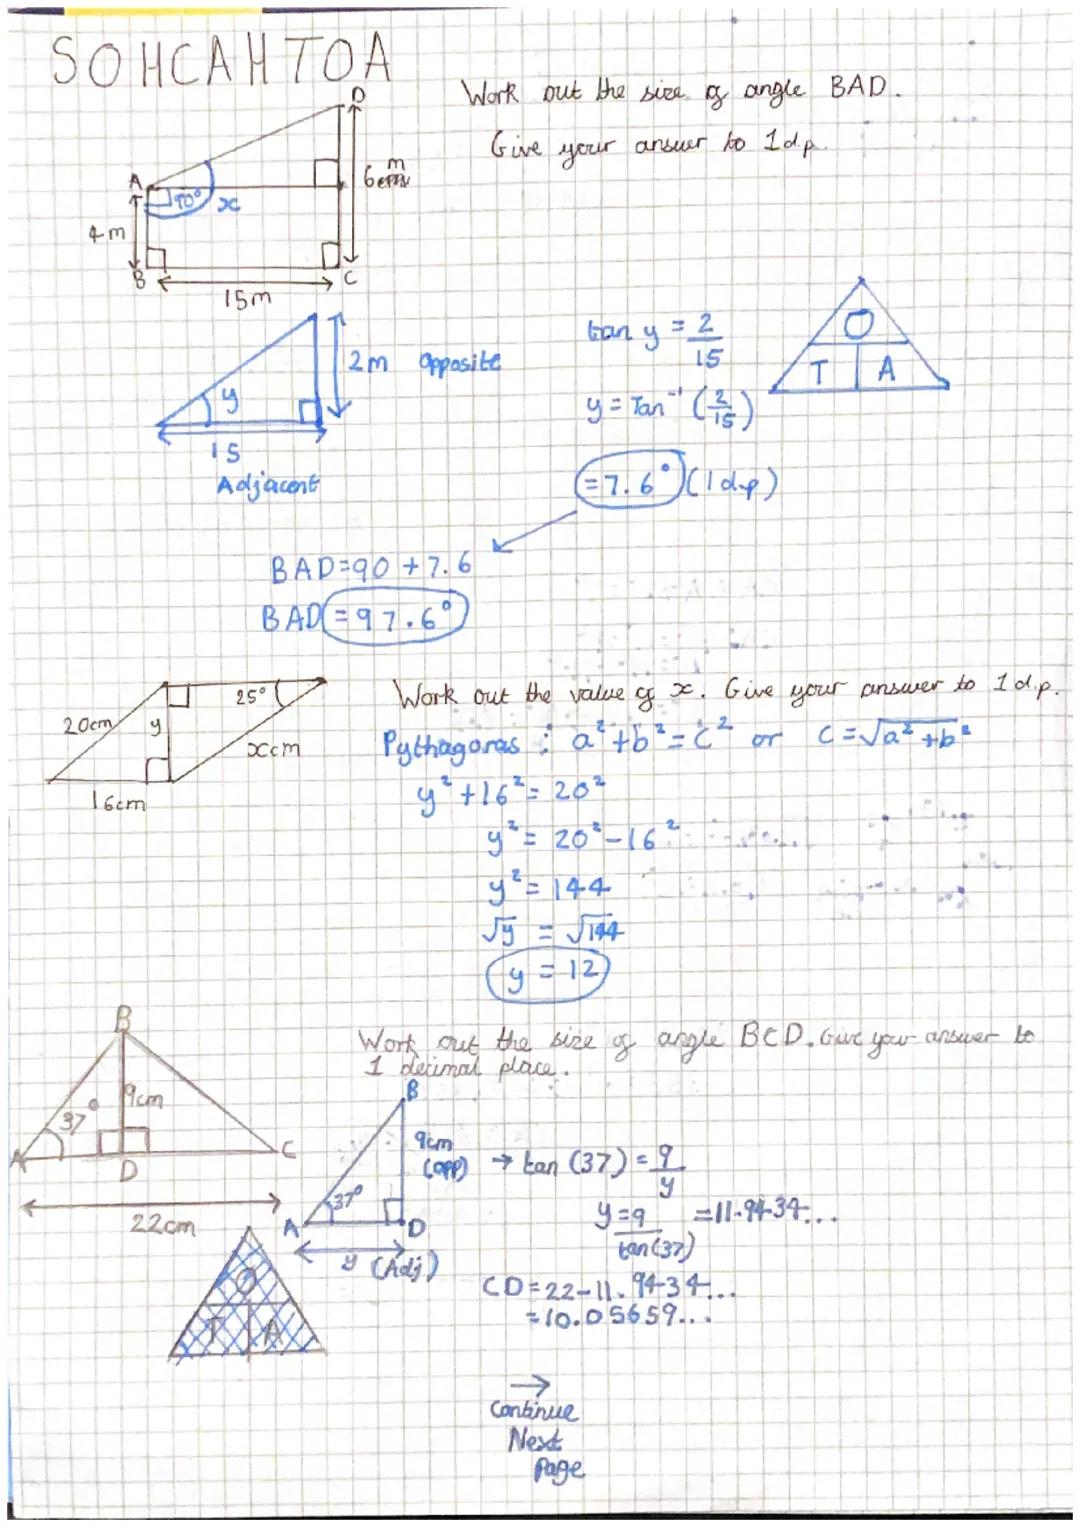 SOHCAHTOA
Work out the size of angle BAD.
Give your answer to 1d.p.
D
A
90°
x
6 m
4 m
B
C
15m
2m Opposite
y
15
Adjacent
tan y = 2/15
y = Tan⁻¹ (2/15)
= 7.6° (1 d.p)
O
T A
BAD=90 + 7.6
BAD = 97.6°
20cm
y
25°
xcm
16cm
Work out the value of x. Give your answer to 1 d.p.
Pythagoras : a² + b² = c² or c = √a² + b²
y² + 16² = 20²
y² = 20² - 16²
y² = 144
√y = √144
y = 12
Work out the size of angle BCD. Give your answer to
1 decimal place.
B
9cm
37°
A
D
C
22cm
O
T A
B
9cm
(opp)
37°
A
D
y (Adj)
→ tan (37) = 9/y
y = 9/tan(37) = 11.9434...
CD = 22 - 11.9434...
= 10.05659...
→
Continue
Next
Page